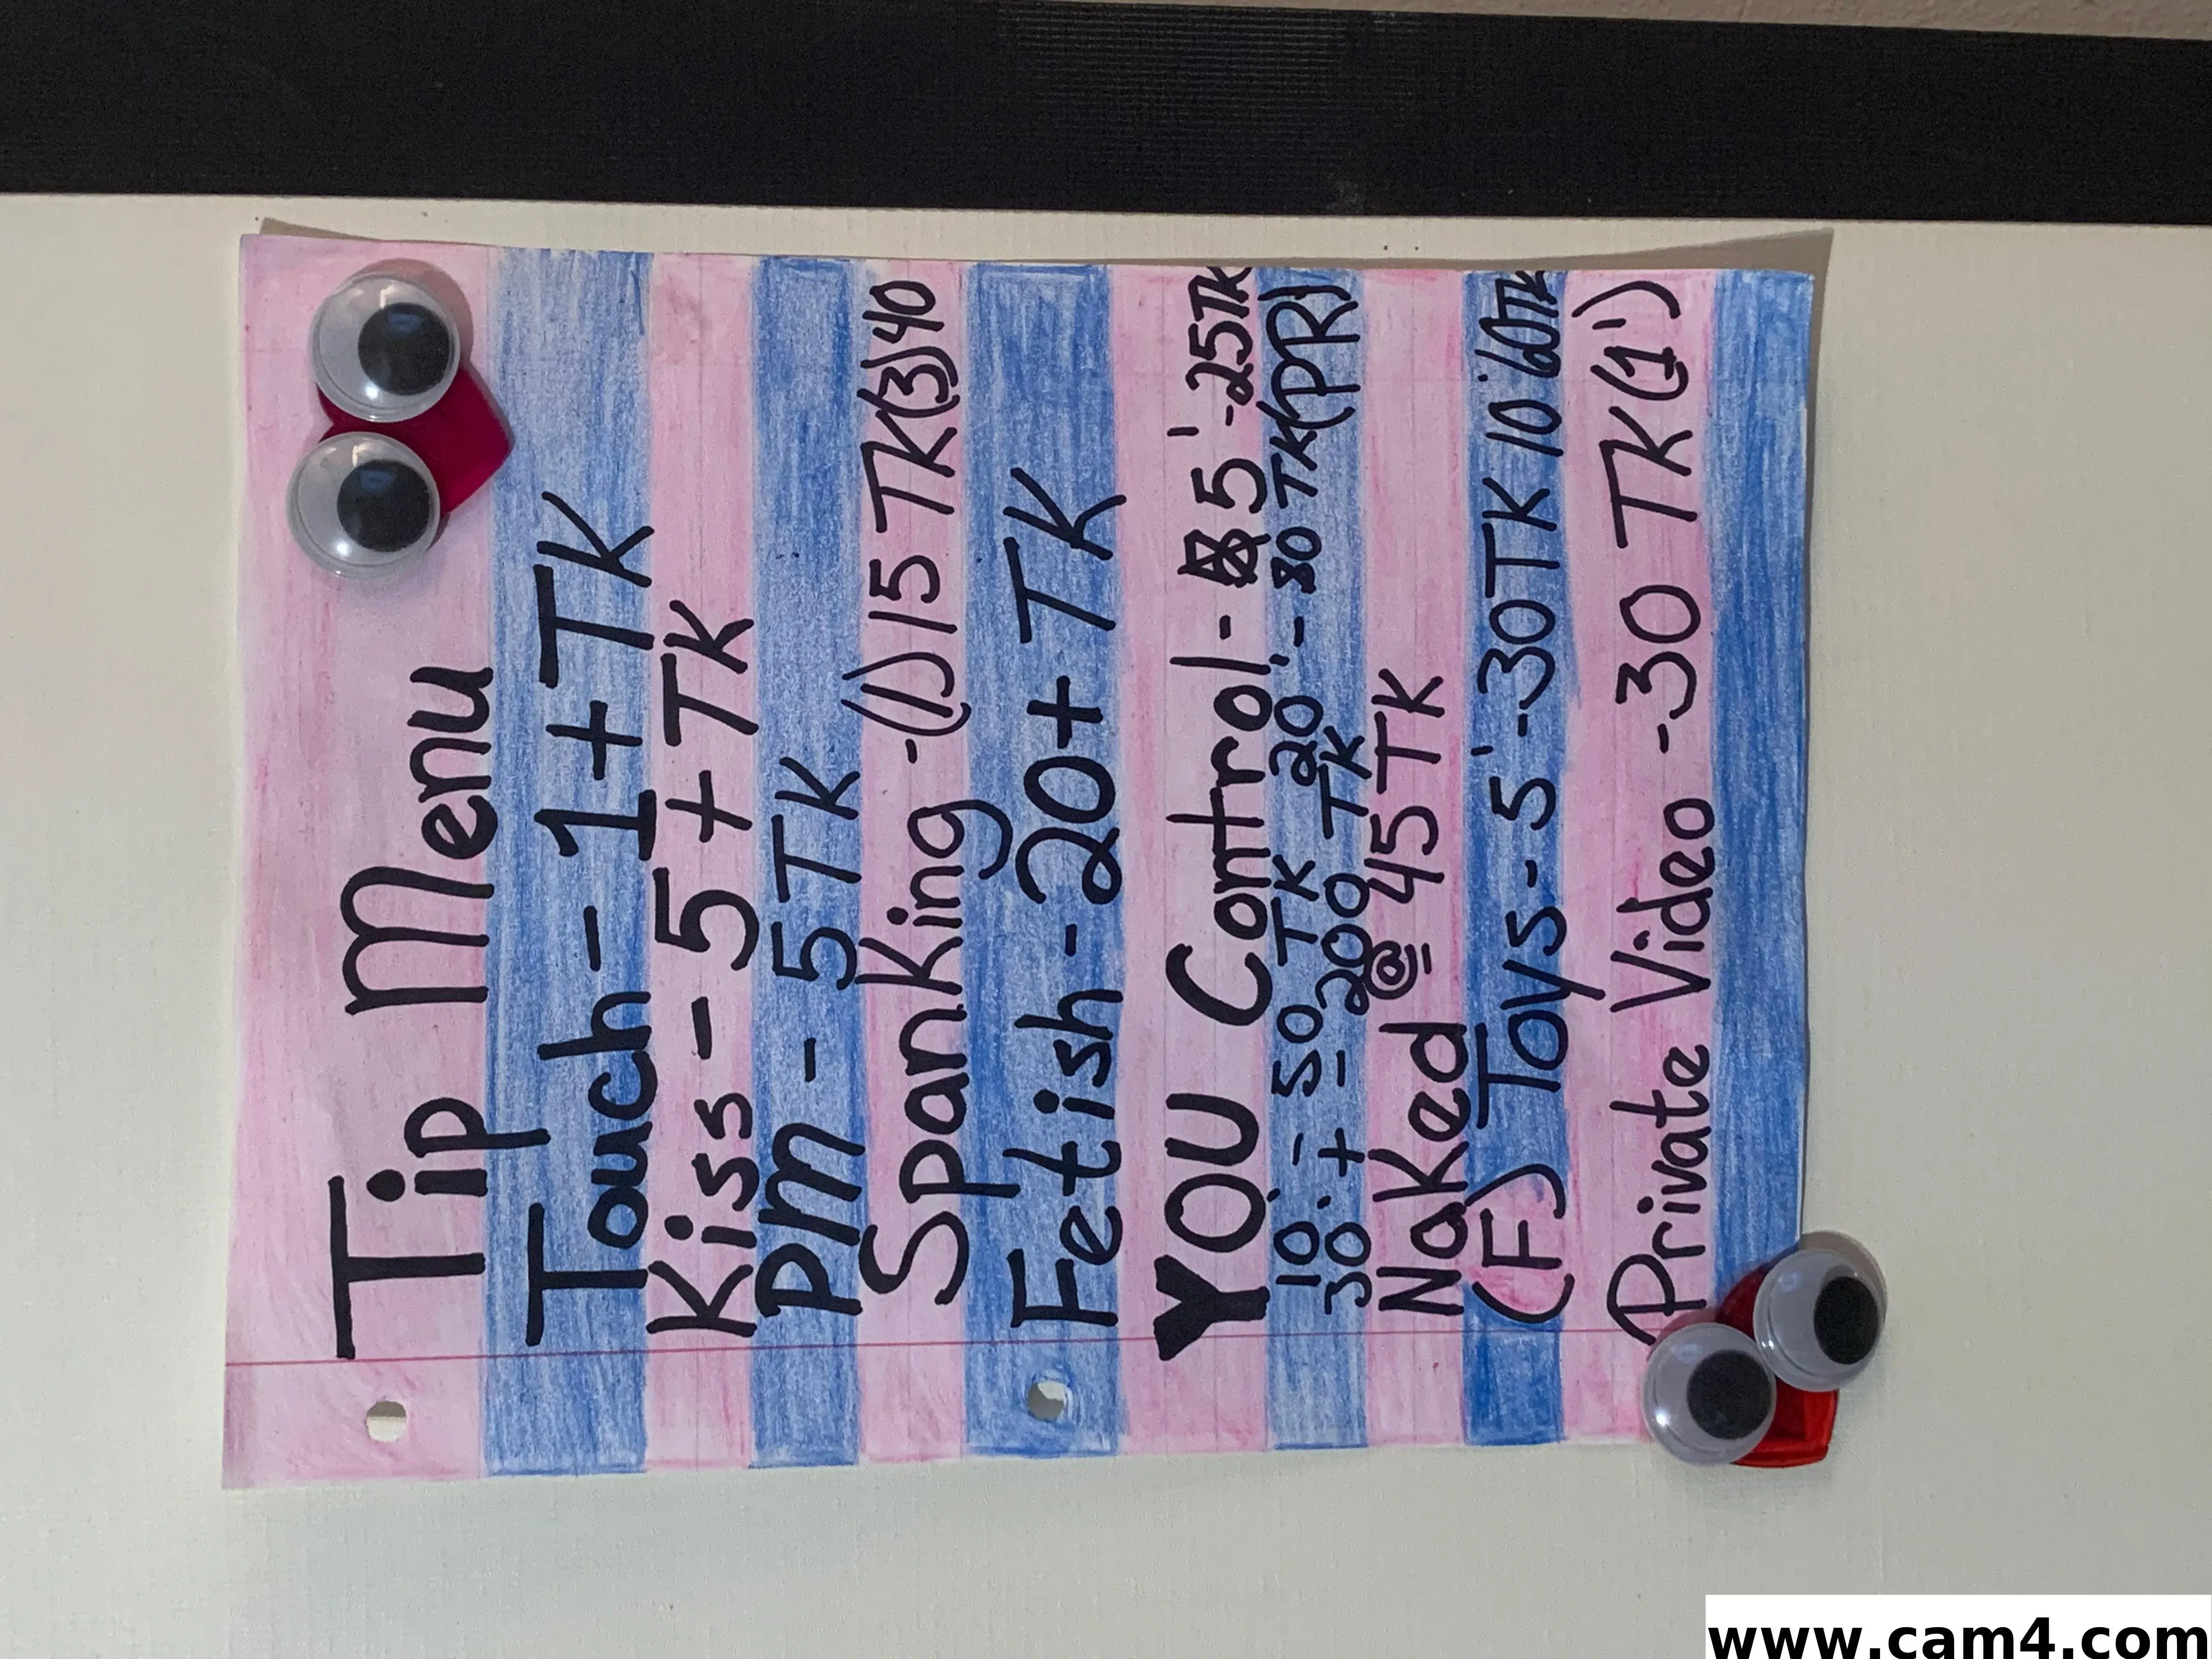 Tip Menu
Touch - 1 + TK
Kiss - 5 + TK
PM - 5TK
Spanking - (1) 15 TK (3) 40
Fetish - 20 + TK
YOU Control - 5' - 25TK
10' - 50 TK 20' - 80 TK (PR)
30' + - 200 TK
Naked @ 45 TK
(F) Toys - 5' - 30TK 10' 60TK
Private Video - 30 TK (1')
www.cam4.com